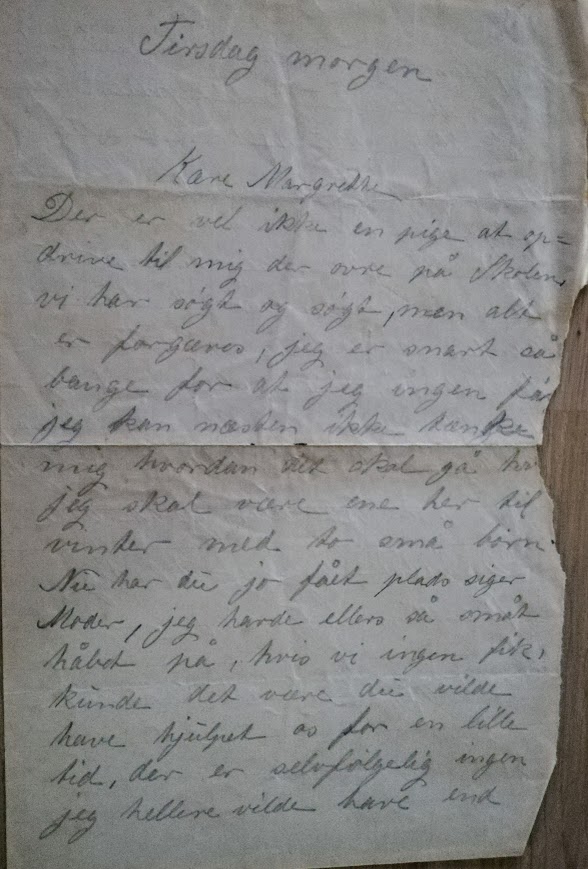 Tirsdag morgen
Kære Margrethe
Der er vel ikke en pige at op=
drive til mig der ovre på Skolen,
vi har søgt og søgt, men alt
er forgæves, jeg er snart så
bange for at jeg ingen får
jeg kan næsten ikke tænke
mig hvordan det skal gå
jeg skal være ene her til
vinter med to små børn.
Nu har du jo fået plads siger
Moder, jeg havde ellers så småt
håbet på, hvis vi ingen fik,
kunde det være du vilde
have hjulpet os for en lille
tid, der er selvfølgelig ingen
jeg hellere vilde have end